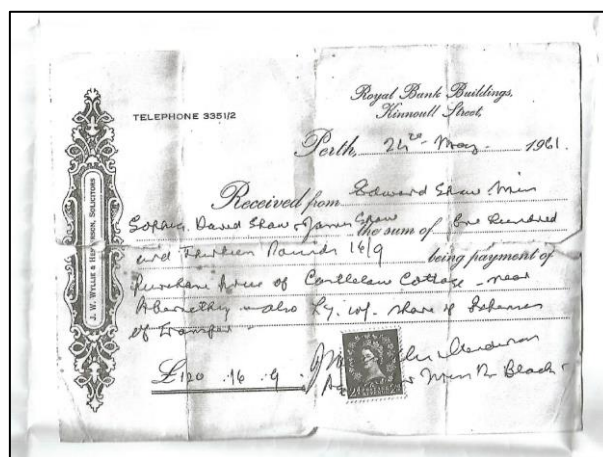 J. W. WYLLIE & HENDERSON, SOLICITORS
TELEPHONE 3351/2
Royal Bank Buildings,
Kinnoull Street,
Perth, May 1961.
Received from Edward Shaw, Miss
Sophia, David Shaw, James Shaw the sum of One Hundred
and Pounds 16/9 being payment of
Purchase Price of Castlelaw Cottage near
Abernethy also share of Expenses
of Transfer
£120 . 16 . 9
Miss Black